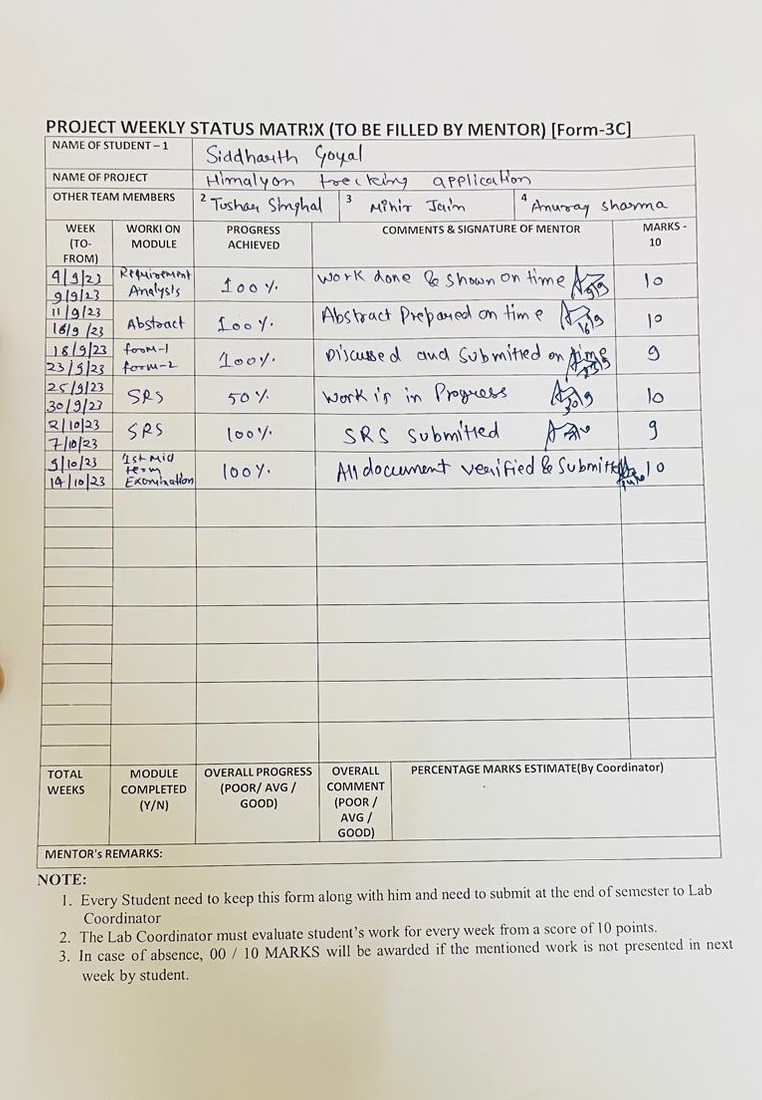 PROJECT WEEKLY STATUS MATRIX (TO BE FILLED BY MENTOR) [Form-3C]
NAME OF STUDENT – 1 Siddharth Goyal
NAME OF PROJECT Himalyan trecking application
OTHER TEAM MEMBERS 2 Tushar Singhal 3 Mihir Jain 4 Anurag Sharma
WEEK (TO-FROM) WORKI ON MODULE PROGRESS ACHIEVED COMMENTS & SIGNATURE OF MENTOR MARKS - 10
4/9/23 9/9/23 Requirement Analysis 100% Work done & shown on time 10
11/9/23 16/9/23 Abstract 100% Abstract Prepared on time 10
18/9/23 23/9/23 form-1 form-2 100% Discussed and Submitted on time 9
25/9/23 30/9/23 SRS 50% Work is in Progress 10
2/10/23 7/10/23 SRS 100% SRS Submitted 9
9/10/23 14/10/23 1st Mid term Examination 100% All document verified & Submitted 10
TOTAL WEEKS MODULE COMPLETED (Y/N) OVERALL PROGRESS (POOR/ AVG / GOOD) OVERALL COMMENT (POOR / AVG / GOOD) PERCENTAGE MARKS ESTIMATE(By Coordinator)
MENTOR's REMARKS:
NOTE:
1. Every Student need to keep this form along with him and need to submit at the end of semester to Lab
Coordinator
2. The Lab Coordinator must evaluate student's work for every week from a score of 10 points.
3. In case of absence, 00 / 10 MARKS will be awarded if the mentioned work is not presented in next
week by student.